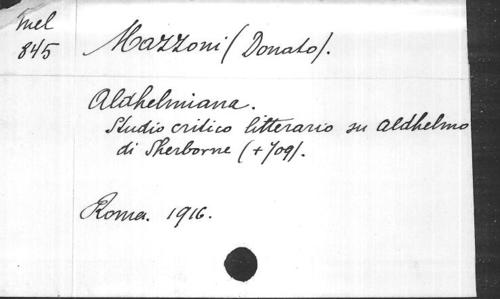 Mel
845
Mazzoni (Donato).
Aldhelmiana.
Studio critico litterario su Aldhelmo
di Sherborne (+709).
Roma. 1916.